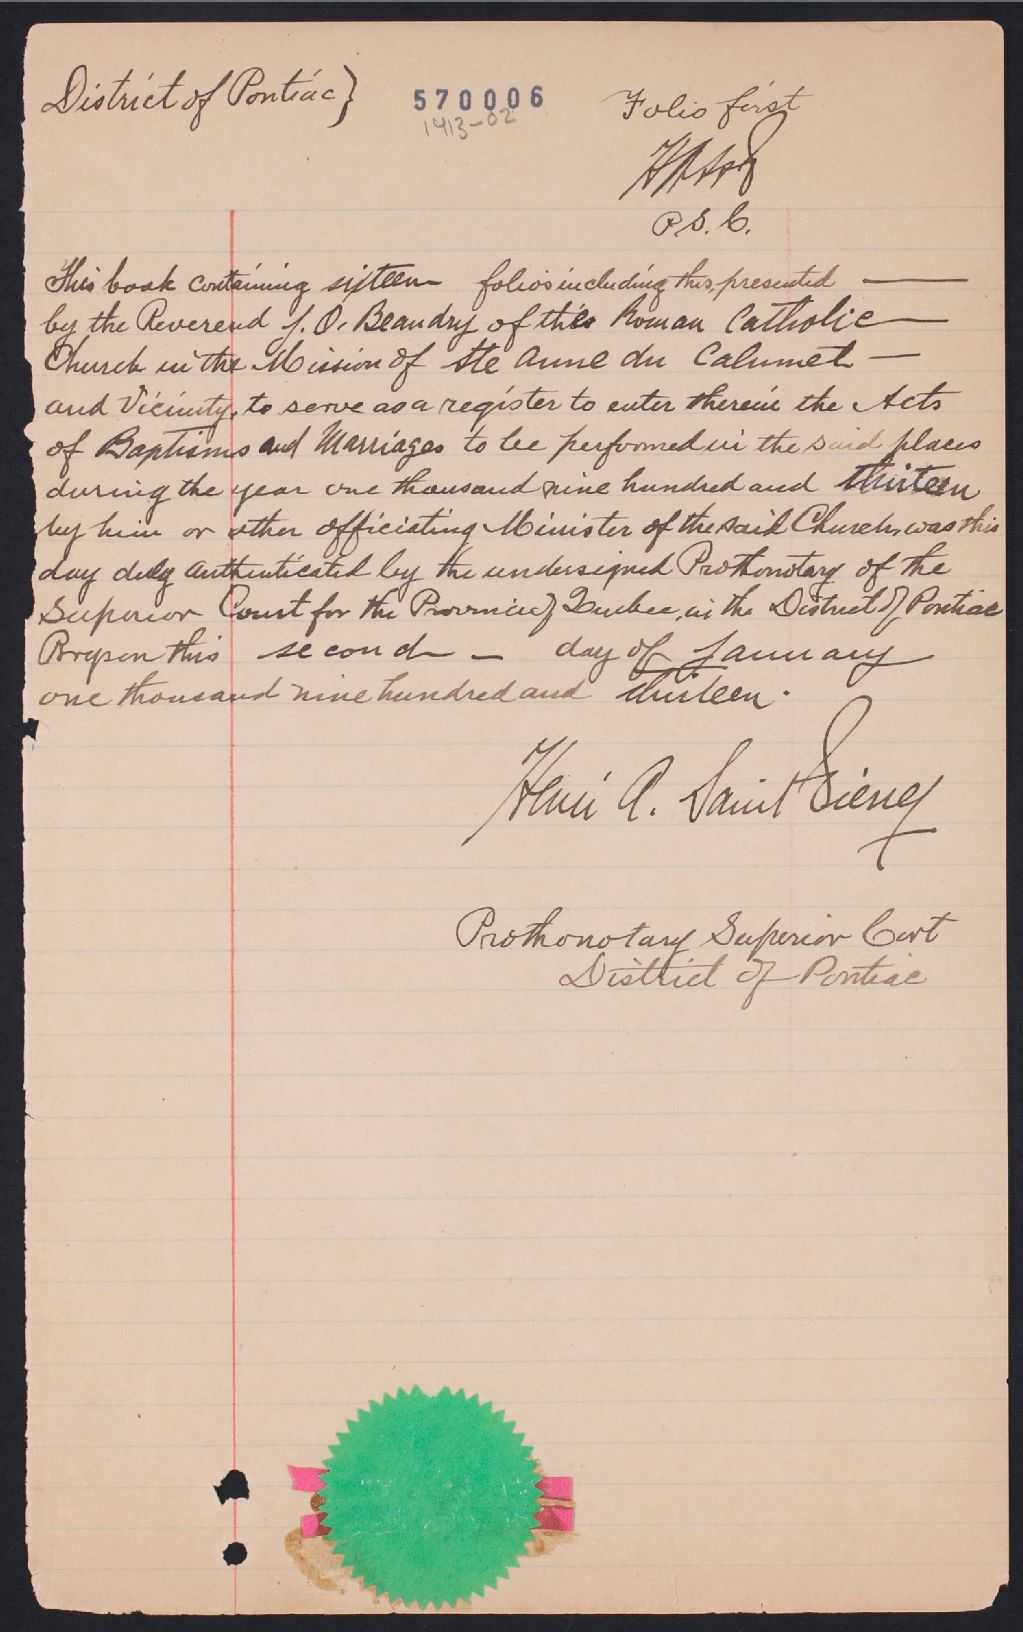 District of Pontiac}
570006
1913-02
Folio first
P. S. C.
This book containing sixteen folios including this, presented
by the Reverend J. O. Beaudry of the Roman Catholic
Church in the Mission of Ste Anne du Calumet —
and Vicinity, to serve as a register to enter therein the Acts
of Baptisms and Marriages to be performed in the said places
during the year one thousand nine hundred and thirteen
by him or other officiating Minister of the said Church, was this
day duly authenticated by the undersigned Prothonotary of the
Superior Court for the Province of Quebec, in the District of Pontiac
Bryson this second — day of January
one thousand nine hundred and thirteen.
Henri A. Saint Pierre
Prothonotary Superior Cort
District of Pontiac